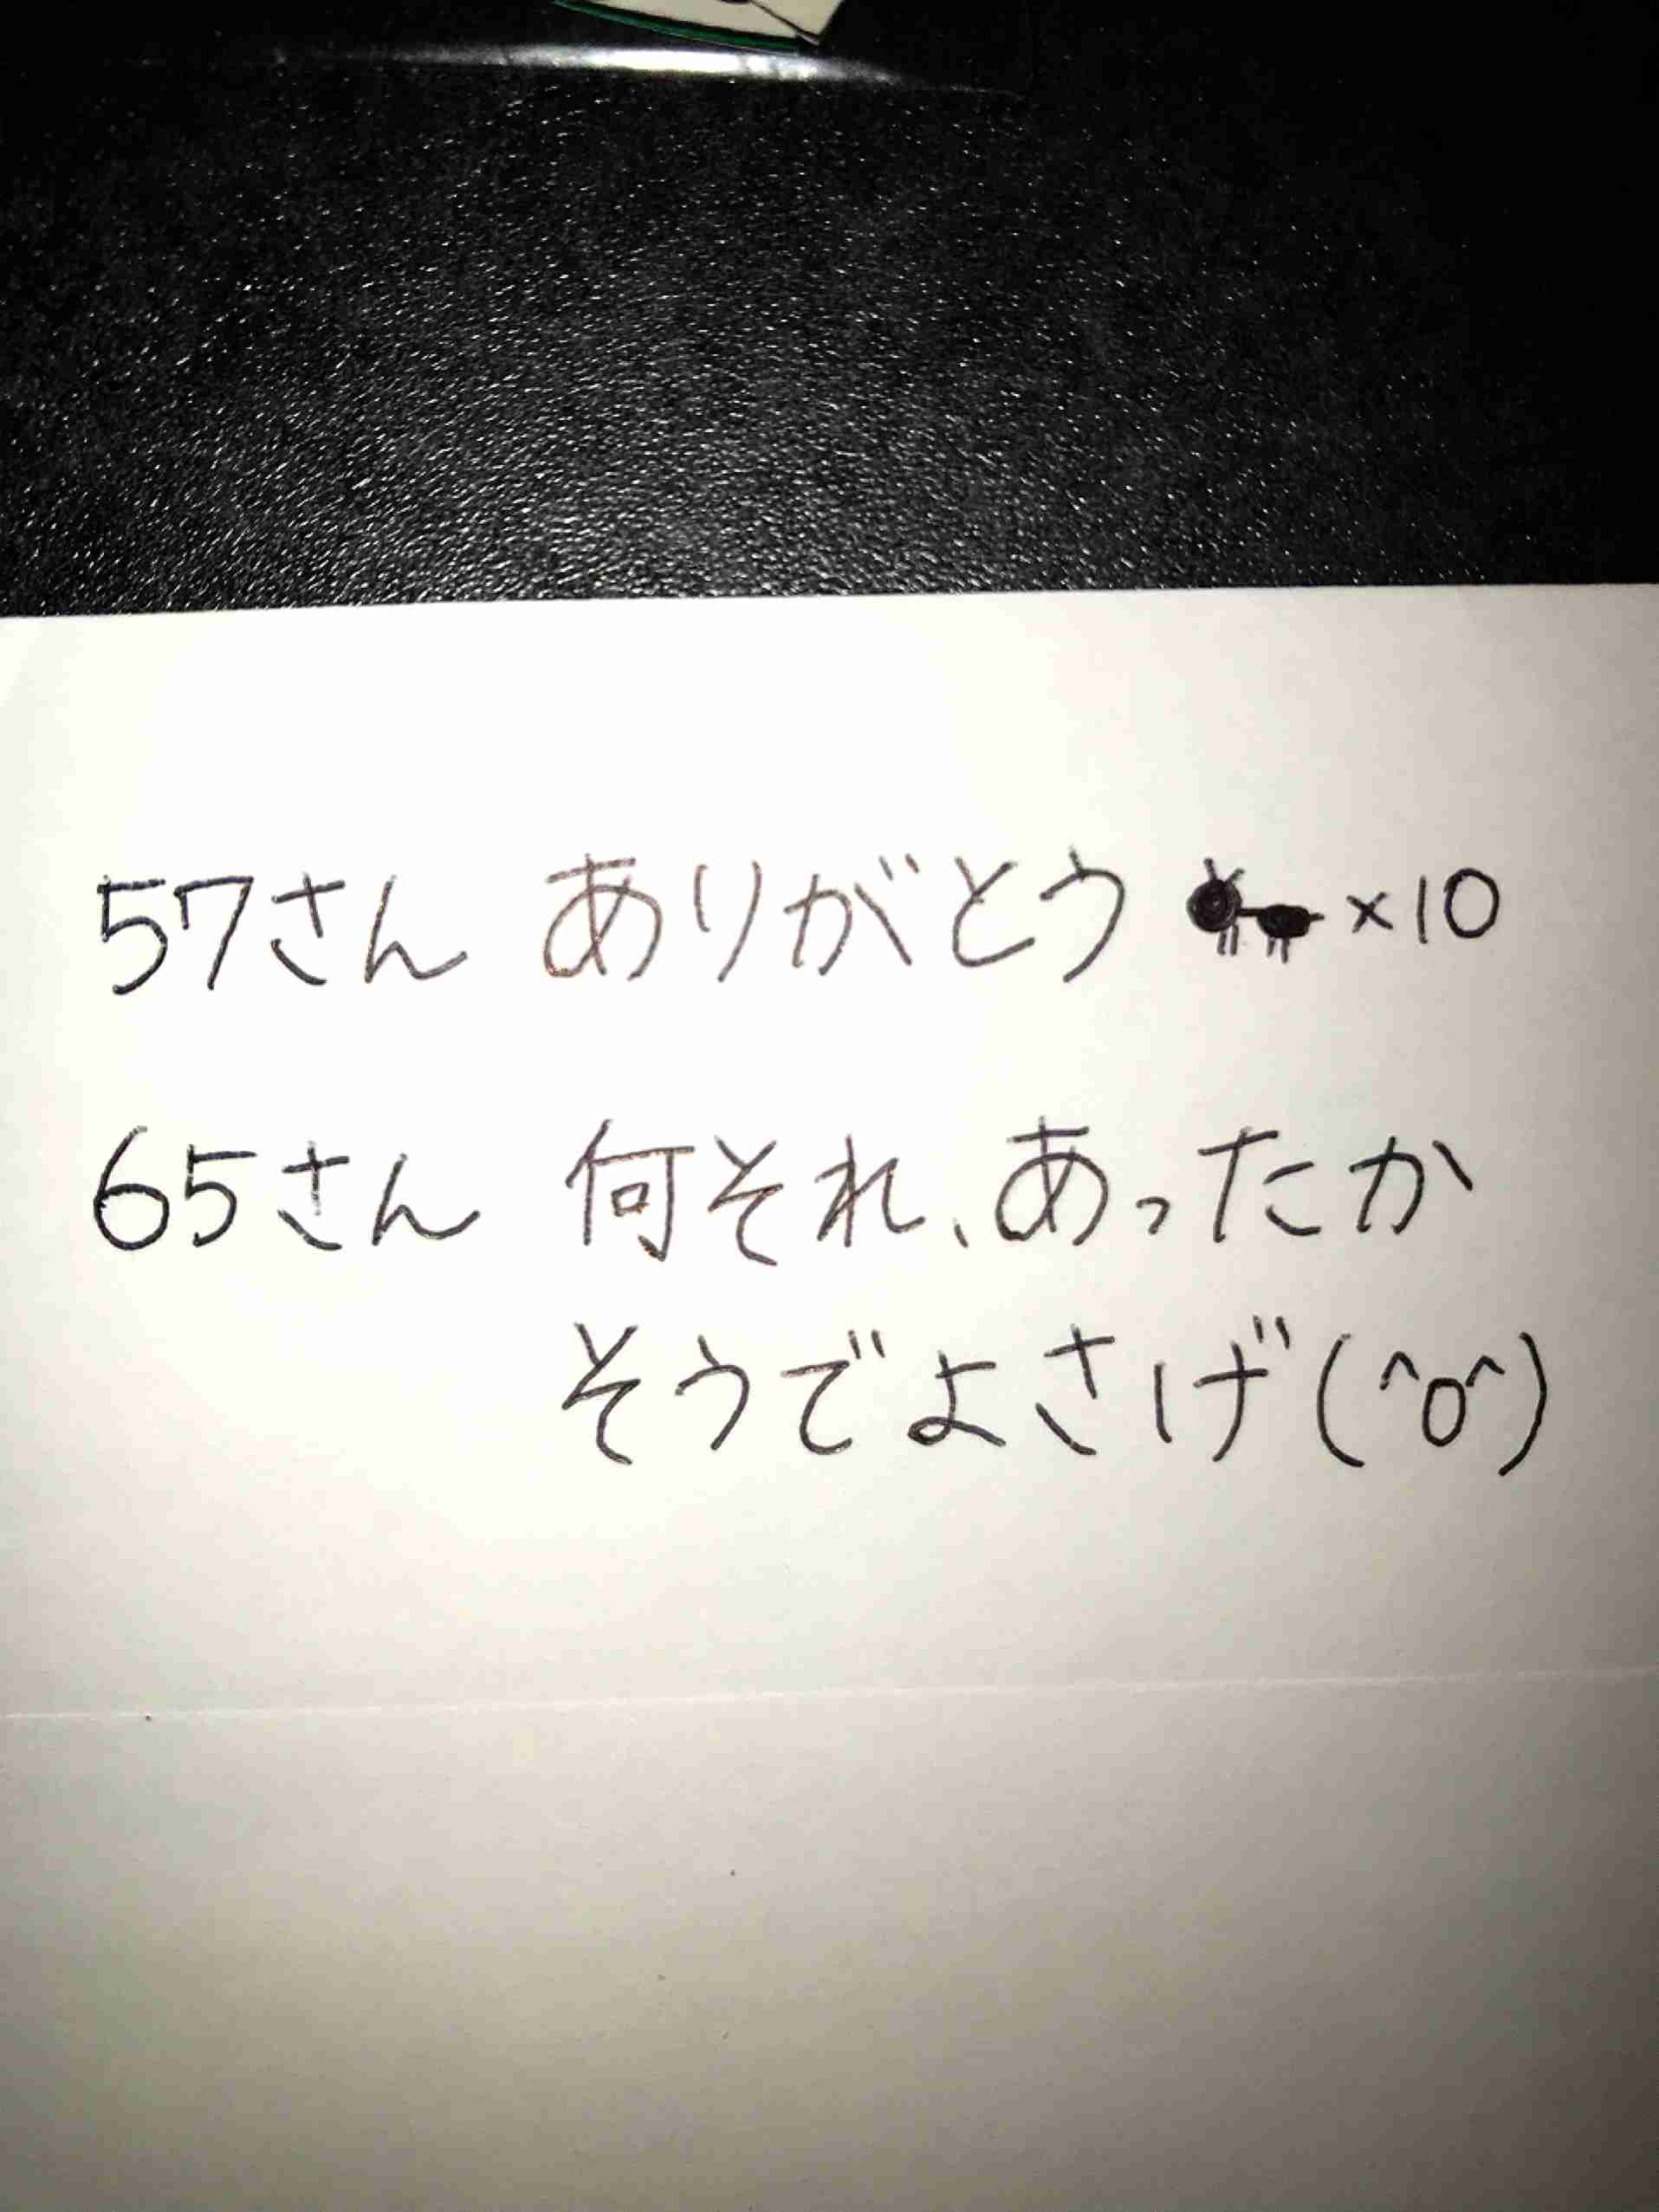 57さん ありがとう ×10
65さん 何それ、あったか
そうでよさげ(^o^)